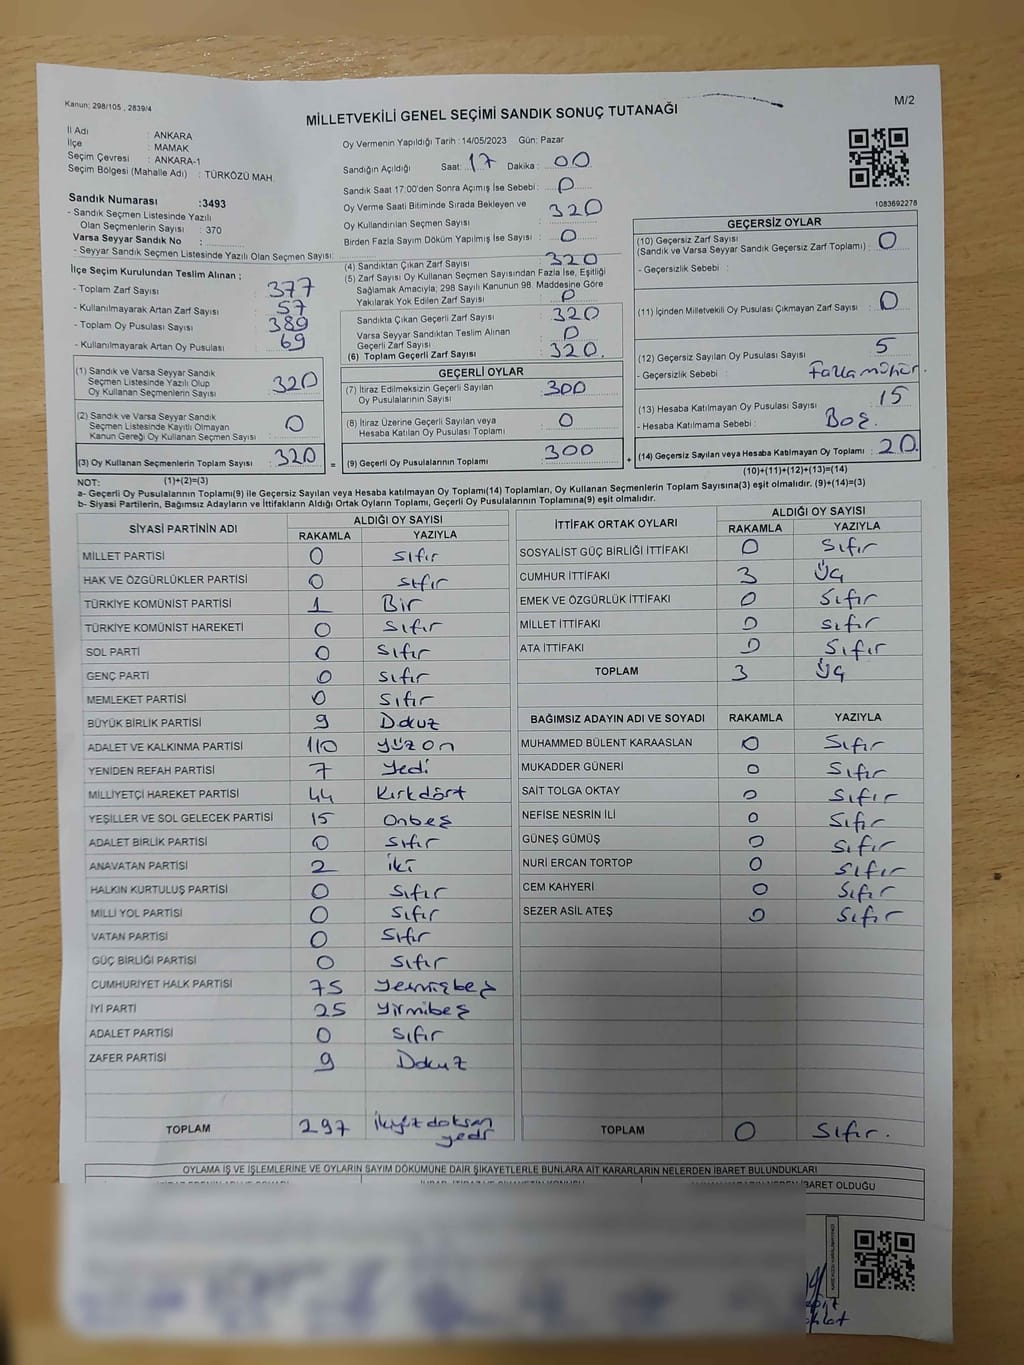 Kanun: 298/105 , 2839/4
MİLLETVEKİLİ GENEL SEÇİMİ SANDIK SONUÇ TUTANAĞI
M/2
İl Adı : ANKARA
İlçe : MAMAK
Seçim Çevresi : ANKARA-1
Seçim Bölgesi (Mahalle Adı) : TÜRKÖZÜ MAH.
Sandık Numarası :3493
- Sandık Seçmen Listesinde Yazılı
Olan Seçmenlerin Sayısı : 370
Varsa Seyyar Sandık No :
- Seyyar Sandık Seçmen Listesinde Yazılı Olan Seçmen Sayısı:
İlçe Seçim Kurulundan Teslim Alınan ;
- Toplam Zarf Sayısı : 377
- Kullanılmayarak Artan Zarf Sayısı : 57
- Toplam Oy Pusulası Sayısı : 389
- Kullanılmayarak Artan Oy Pusulası : 69
(1) Sandık ve Varsa Seyyar Sandık
Seçmen Listesinde Yazılı Olup
Oy Kullanan Seçmenlerin Sayısı : 320
(2) Sandık ve Varsa Seyyar Sandık
Seçmen Listesinde Kayıtlı Olmayan
Kanun Gereği Oy Kullanan Seçmen Sayısı : 0
(3) Oy Kullanan Seçmenlerin Toplam Sayısı : 320
(1)+(2)=(3)
Oy Vermenin Yapıldığı Tarih : 14/05/2023 Gün: Pazar
Sandığın Açıldığı Saat: 17 Dakika : 00
Sandık Saat 17:00'den Sonra Açımış İse Sebebi : 0
Oy Verme Saati Bitiminde Sırada Bekleyen ve
Oy Kullandırılan Seçmen Sayısı : 320
Birden Fazla Sayım Döküm Yapılmış İse Sayısı : 0
(4) Sandıktan Çıkan Zarf Sayısı : 320
(5) Zarf Sayısı Oy Kullanan Seçmen Sayısından Fazla İse, Eşitliği
Sağlamak Amacıyla, 298 Sayılı Kanunun 98. Maddesine Göre
Yakılarak Yok Edilen Zarf Sayısı : 0
Sandıkta Çıkan Geçerli Zarf Sayısı : 320
Varsa Seyyar Sandıktan Teslim Alınan
Geçerli Zarf Sayısı : 0
(6) Toplam Geçerli Zarf Sayısı : 320.
GEÇERLİ OYLAR
(7) İtiraz Edilmeksizin Geçerli Sayılan
Oy Pusulalarının Sayısı : 300
(8) İtiraz Üzerine Geçerli Sayılan veya
Hesaba Katılan Oy Pusulası Toplamı : 0
= (9) Geçerli Oy Pusulalarının Toplamı : 300
1083692276
GEÇERSİZ OYLAR
(10) Geçersiz Zarf Sayısı
(Sandık ve Varsa Seyyar Sandık Geçersiz Zarf Toplamı) : 0
- Geçersizlik Sebebi :
(11) İçinden Milletvekili Oy Pusulası Çıkmayan Zarf Sayısı : 0
(12) Geçersiz Sayılan Oy Pusulası Sayısı : 5
- Geçersizlik Sebebi : Fazla mühür.
(13) Hesaba Katılmayan Oy Pusulası Sayısı : 15
- Hesaba Katılmama Sebebi : Boş.
+ (14) Geçersiz Sayılan veya Hesaba Katılmayan Oy Toplamı : 20.
(10)+(11)+(12)+(13)=(14)
NOT:
a- Geçerli Oy Pusulalarının Toplamı(9) ile Geçersiz Sayılan veya Hesaba katılmayan Oy Toplamı(14) Toplamları, Oy Kullanan Seçmenlerin Toplam Sayısına(3) eşit olmalıdır. (9)+(14)=(3)
b- Siyasi Partilerin, Bağımsız Adayların ve İttifakların Aldığı Ortak Oyların Toplamı, Geçerli Oy Pusulalarının Toplamına(9) eşit olmalıdır.
SİYASİ PARTİNİN ADI ALDIĞI OY SAYISI
RAKAMLA YAZIYLA
MİLLET PARTİSİ 0 Sıfır
HAK VE ÖZGÜRLÜKLER PARTİSİ 0 Sıfır
TÜRKİYE KOMÜNİST PARTİSİ 1 Bir
TÜRKİYE KOMÜNİST HAREKETİ 0 Sıfır
SOL PARTİ 0 Sıfır
GENÇ PARTİ 0 Sıfır
MEMLEKET PARTİSİ 0 Sıfır
BÜYÜK BİRLİK PARTİSİ 9 Dokuz
ADALET VE KALKINMA PARTİSİ 110 Yüzon
YENİDEN REFAH PARTİSİ 7 Yedi
MİLLİYETÇİ HAREKET PARTİSİ 44 Kırkdört
YEŞİLLER VE SOL GELECEK PARTİSİ 15 Onbeş
ADALET BİRLİK PARTİSİ 0 Sıfır
ANAVATAN PARTİSİ 2 İki
HALKIN KURTULUŞ PARTİSİ 0 Sıfır
MİLLİ YOL PARTİSİ 0 Sıfır
VATAN PARTİSİ 0 Sıfır
GÜÇ BİRLİĞİ PARTİSİ 0 Sıfır
CUMHURİYET HALK PARTİSİ 75 Yetmişbeş
İYİ PARTİ 25 Yirmibeş
ADALET PARTİSİ 0 Sıfır
ZAFER PARTİSİ 9 Dokuz
TOPLAM 297 İkiyüzdoksan
yedi
İTTİFAK ORTAK OYLARI ALDIĞI OY SAYISI
RAKAMLA YAZIYLA
SOSYALİST GÜÇ BİRLİĞİ İTTİFAKI 0 Sıfır
CUMHUR İTTİFAKI 3 Üç
EMEK VE ÖZGÜRLÜK İTTİFAKI 0 Sıfır
MİLLET İTTİFAKI 0 Sıfır
ATA İTTİFAKI 0 Sıfır
TOPLAM 3 Üç
BAĞIMSIZ ADAYIN ADI VE SOYADI RAKAMLA YAZIYLA
MUHAMMED BÜLENT KARAASLAN 0 Sıfır
MUKADDER GÜNERİ 0 Sıfır
SAİT TOLGA OKTAY 0 Sıfır
NEFİSE NESRİN İLİ 0 Sıfır
GÜNEŞ GÜMÜŞ 0 Sıfır
NURİ ERCAN TORTOP 0 Sıfır
CEM KAHYERİ 0 Sıfır
SEZER ASİL ATEŞ 0 Sıfır
TOPLAM 0 Sıfır.
OYLAMA İŞ VE İŞLEMLERİNE VE OYLARIN SAYIM DÖKÜMÜNE DAİR ŞİKAYETLERLE BUNLARA AİT KARARLARIN NELERDEN İBARET BULUNDUKLARI
İBARET OLDUĞU